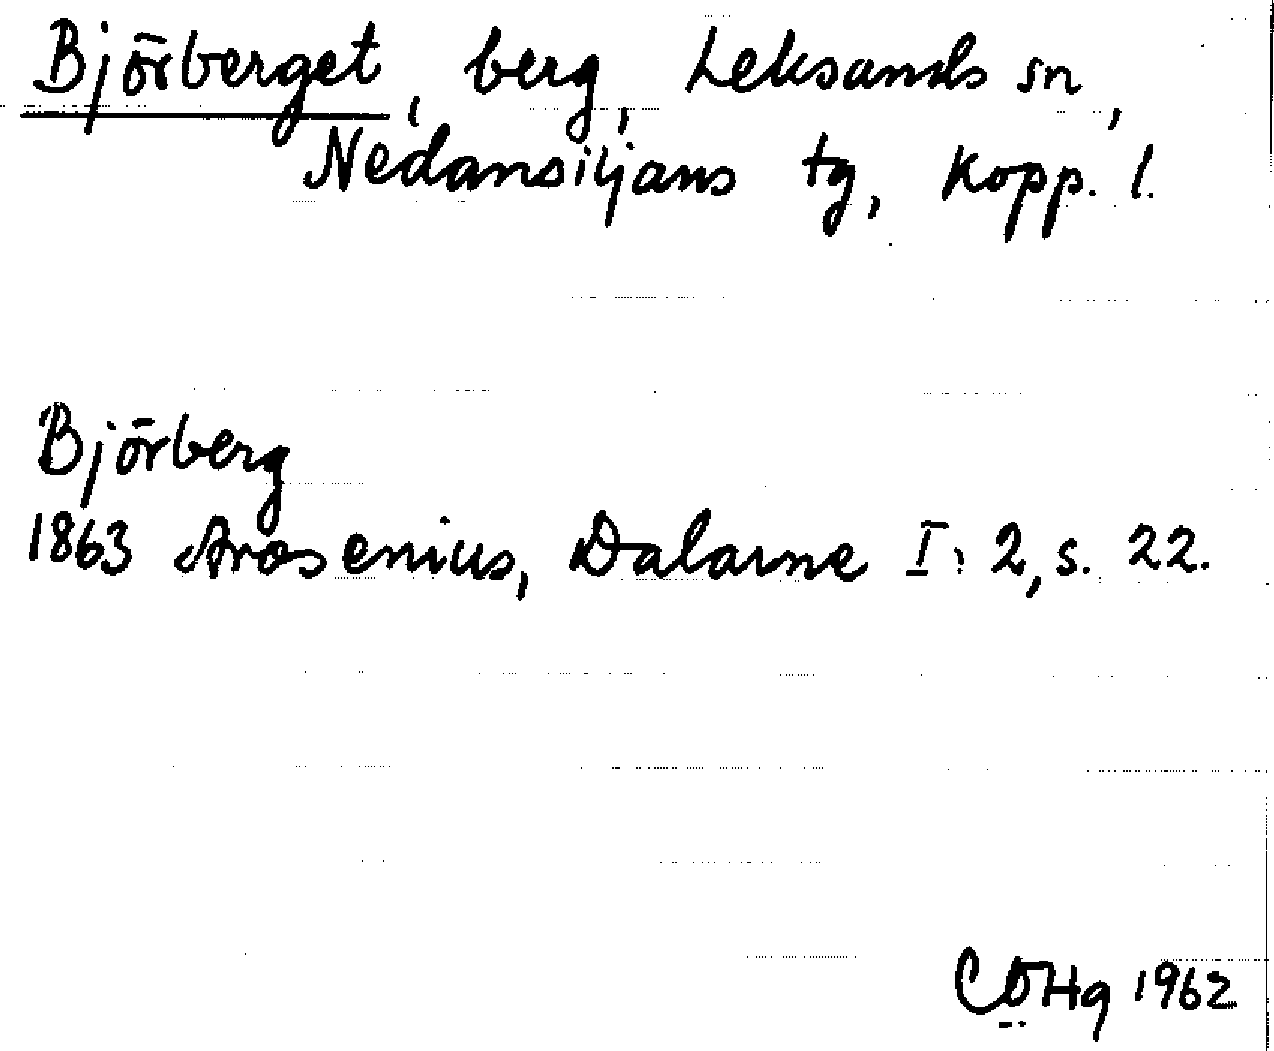 Björberget, berg, Leksands sn,
Nedansiljans tg, Kopp. l.
Björberg
1863 Arosenius, Dalarne I: 2, s. 22.
CÖHg 1962